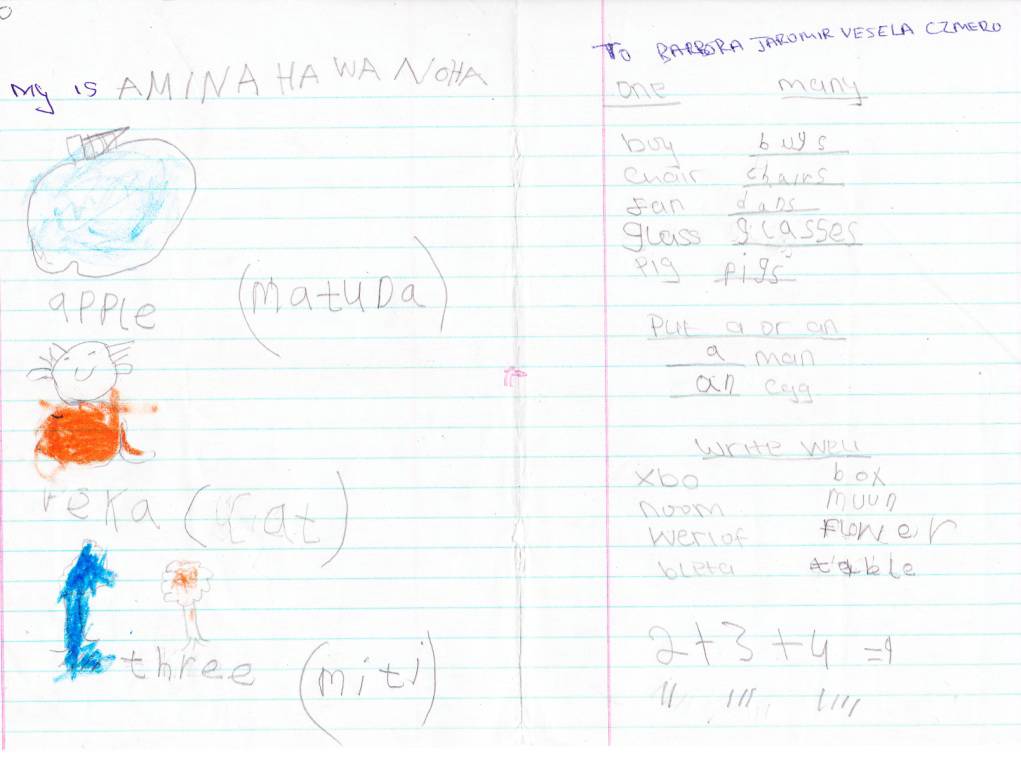 my is AMINA HAWA NOHA
apple (matuDa)
reKa (Cat)
three (miti)
To BARBORA JAROMIR VESELA CZMERO
one many
buy buys
chair chairs
Fan dans
glass glasses
pig pigs
Put a or an
a man
an egg
write well
xbo box
noom muun
werlof FLOWer
bleta table
2+3+4 =9